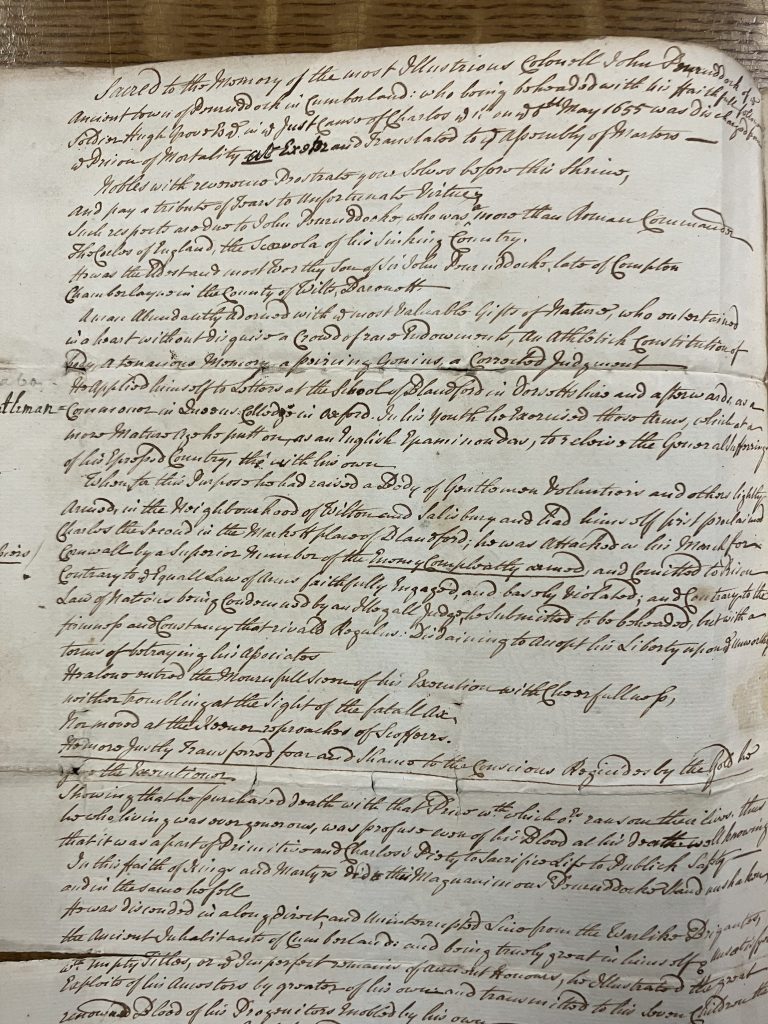 Sacred to the Memory of the most Illustrious Colonell John Penruddock of ye
Ancient town of Penruddock in Cumberland: who being beheaded with his Faithfull fellow
Soldier Hugh Grove Esqr in ye Just Cause of Charles ye 2d on ye 6th May 1655 was discharged from
ye Prison of Mortality at Exeter and Translated to ye Assembly of Martors —
Nobles with reverence Prostrate your Selves before this Shrine,
and pay a tribute of Tears to Unfortunate Virtue,
Such respects are due to John Penruddocke, who was a more than Roman Commander
The Cocles of England, the Scævola of his Sinking Country.
He was the Eldest and most Worthy Son of Sir John Penruddocke, late of Compton
Chamberlayne in the County of Wilts, Baronett
A man Abundantly Adorned with ye most Valuable Gifts of Nature, who entertained
in a heart without disguise a Crowd of rare Endowments, An Athletick Constitution of
Body, a tenacious Memory, a peircing Genius, a Corrected Judgment
He Applied himself to Letters at the School of Blandford in Dorsettshire and afterwards, as a
tleman = Commoner in Queens Colledge in Oxford. In his Youth he Exercised those Arms, which at a
more Mature Age he putt on, as an English Epaminondas, to releive the General Sufferings
of his Opressed Country, tho' with his own
When for this Purpose he had raised a Body of Gentlemen Voluntiers and others lightly
Armed, in the Neighbourhood of Wilton and Salisbury and had himself first proclaimed
Charles the Second in the Markett place of Blandford; he was Attacked in his March for
Cornwall by a Superior Number of the Enemy Compleatly armed, and Comitted to Prison
Contrary to ye Equall Law of Arms faithfully Engaged, and basely Violated; and Contrary to the
Law of Nations being Condemned by an Illegall Judge he Submitted to be beheaded, but with a
firmness and Constancy that rivald Regulus: Disdaining to Accept his Liberty upon ye unworthy
terms of betraying his Associates
He alone entred the Mournfull Scene of his Execution with Cheerfullness,
neither trembling at the Sight of the fatall Ax,
Nor moved at the Keener reproaches of Scoffers.
He more Justly Transferred fear and Shame to the Conscious Regicides by the Gold he
gave the Executioner
Showing that he purchased death with that Price wth which Ors ransom their lives, thus
he who living was ever generous, was profuse even of his Blood at his death well knowing
that it was a part of Primitive and Charles's Piety to Sacrifice Life to Publick Safty
In this Faith of Kings and Martyrs did the Magnanimous Penruddocke Stand unshaken,
and in the same he fell
He was discended in a long Direct, and Uninterrupted Line from the Warlike Brigantes
the Ancient Inhabitants of Cumberland: and being truely great in himself
wth Empty Titles, or ye Imperfect remains of Ancient Honours, he Illustrated the great
Exploits of his Ancestors by greater of his own and transmitted to his Seven Children the
renowned Blood of his Progenitors Enobled by his own